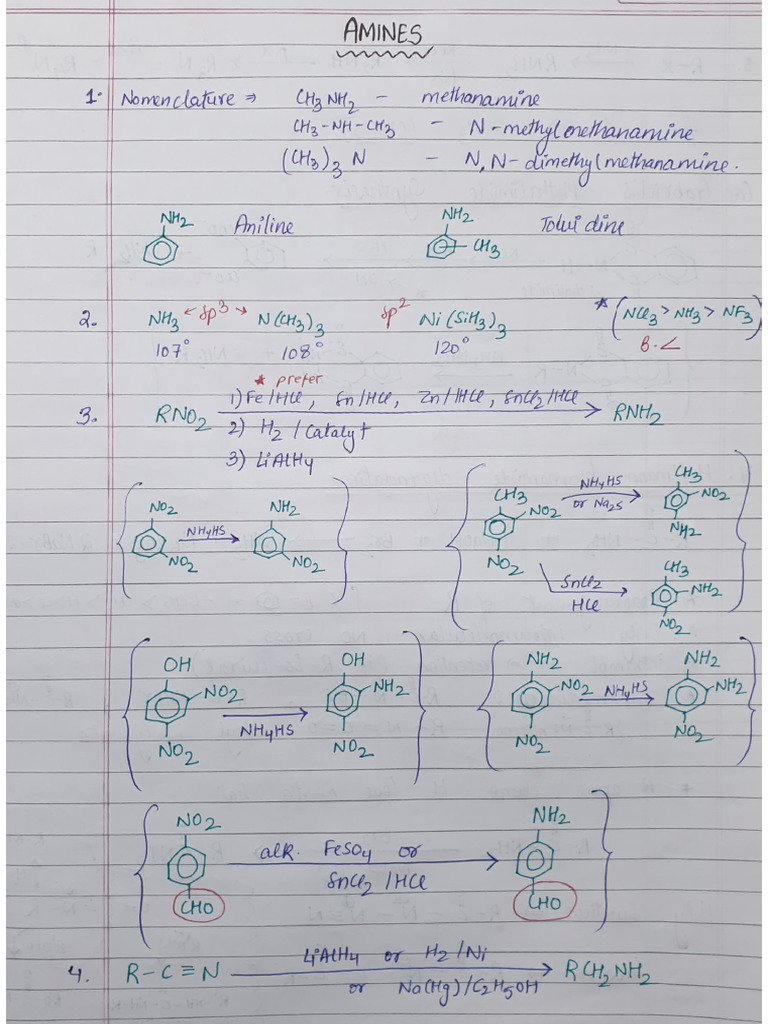 AMINES
1. Nomenclature ⇒ CH3NH2 – methanamine
CH3-NH-CH3 – N-methylmethanamine
(CH3)3 N – N,N-dimethylmethanamine.
NH2 Aniline NH2 CH3 Toluidine
2. NH3 ← sp3 → N(CH3)3 sp2 Ni(SiH3)3 * (NCl3 > NH3 > NF3)
107° 108° 120° B.∠
* prefer
3. RNO2 1) Fe/HCl, Sn/HCl, Zn/HCl, SnCl2/HCl → RNH2
2) H2 / Catalyt
3) LiAlH4
NO2 NO2 NH4HS → NH2 NO2
CH3 NO2 NO2 NH4HS or Na2S → CH3 NO2 NH2
SnCl2 HCl → CH3 NH2 NO2
OH NO2 NO2 NH4HS → OH NH2 NO2
NH2 NO2 NO2 NH4HS → NH2 NH2 NO2
NO2 CHO alk. FeSO4 or SnCl2 /HCl → NH2 CHO
4. R-C≡N LiAlH4 or H2/Ni → RCH2NH2
or Na(Hg)/C2H5OH